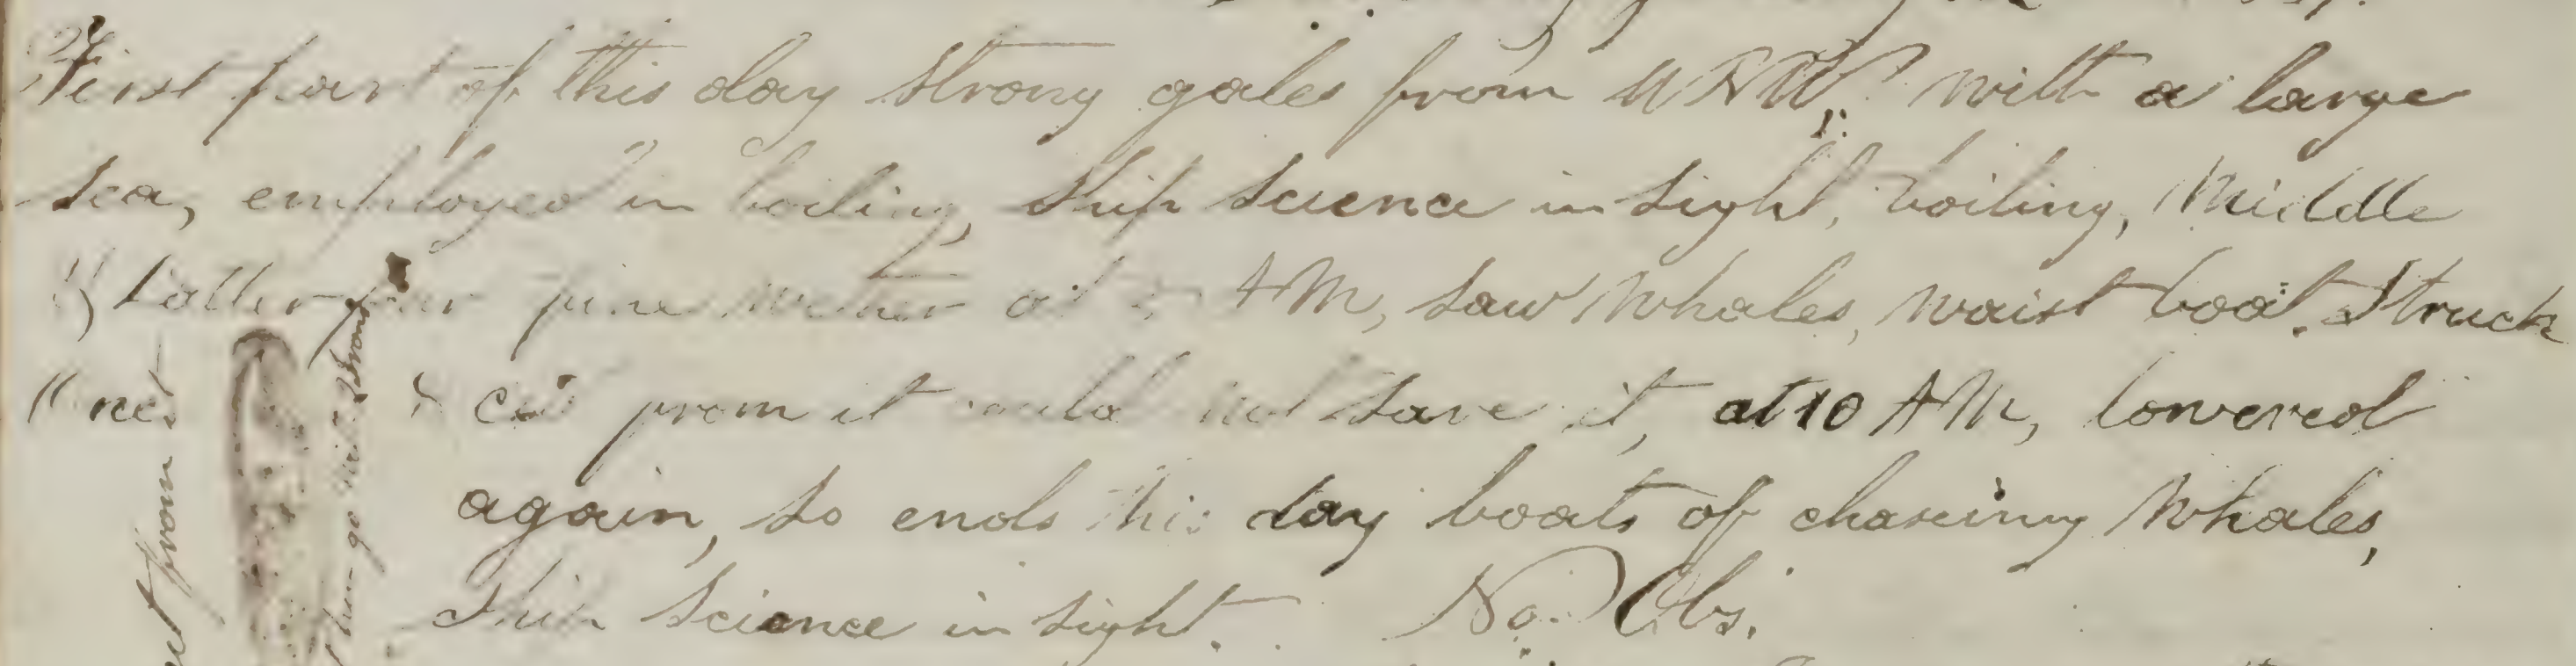 First part of this day strong gales from WNW. with a large
sea, employed in boiling, Ship Science in sight, boiling, Middle
& Latter par fine at AM, saw whales, waist boat Struck
& cut from it could not save it, at 10 AM, lowered
again, so ends this day boats of chasing Whales,
Ship Science in sight. No. Obs.
cut from
Strong
then go